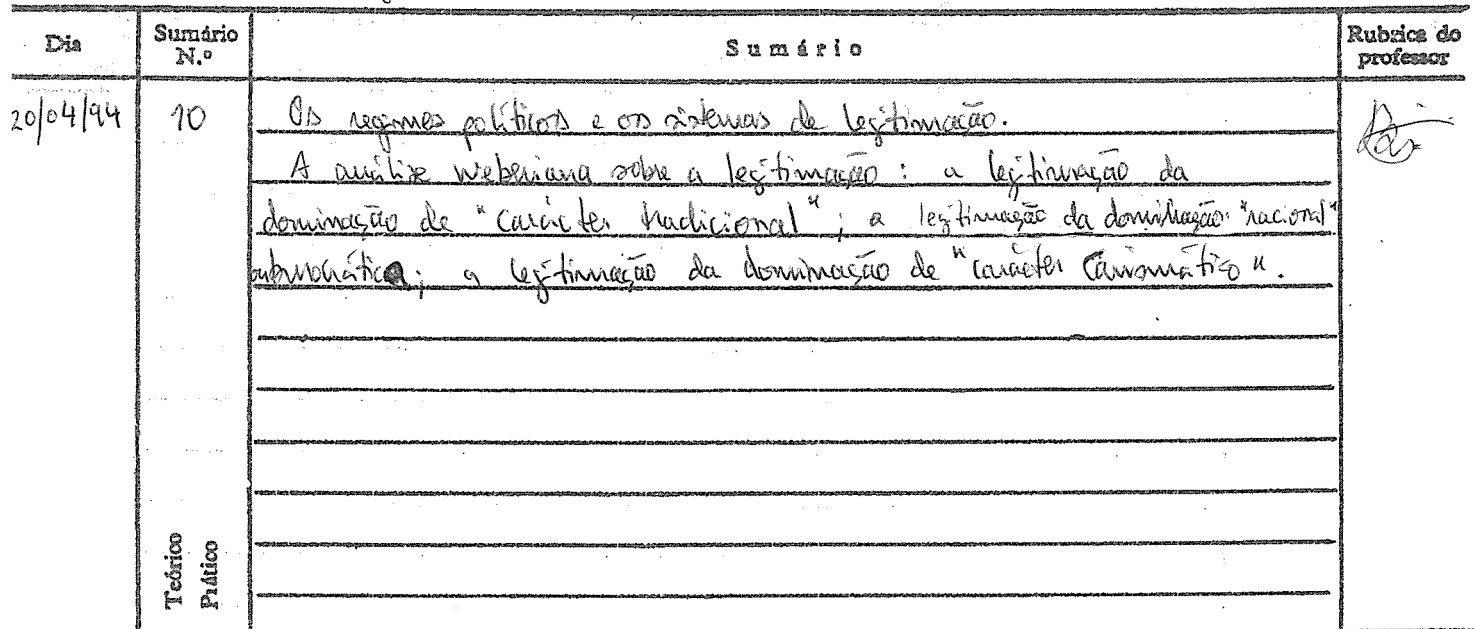 Dia
Sumário N.º
Sumário
Rubrica do professor
20/04/94
10
Os regimes políticos e os sistemas de legitimação.
A análise weberiana sobre a legitimação : a legitimação da
dominação de "carácter tradicional" ; a legitimação da dominação "racional"
burocrática; a legitimação da dominação de "carácter carismático".
Teórico
Prático